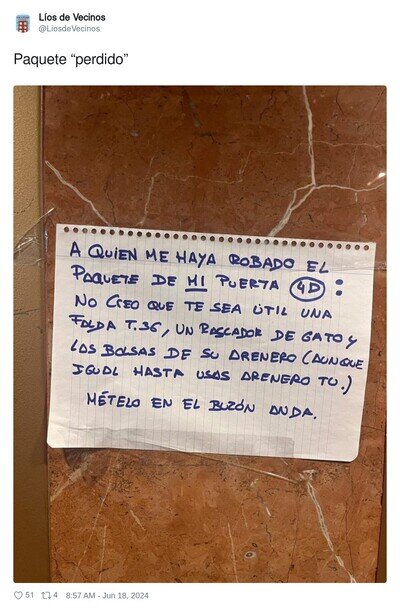 Líos de Vecinos
@LiosdeVecinos
Paquete “perdido”
A QUIEN ME HAYA ROBADO EL
PAQUETE DE MI PUERTA 4D :
NO CREO QUE TE SEA ÚTIL UNA
FALDA T.36, UN RASCADOR DE GATO Y
LAS BOLSAS DE SU ARENERO (AUNQUE
IGUAL HASTA USAS ARENERO TU.)
MÉTELO EN EL BUZÓN ANDA.
51 4 8:57 AM - Jun 18, 2024